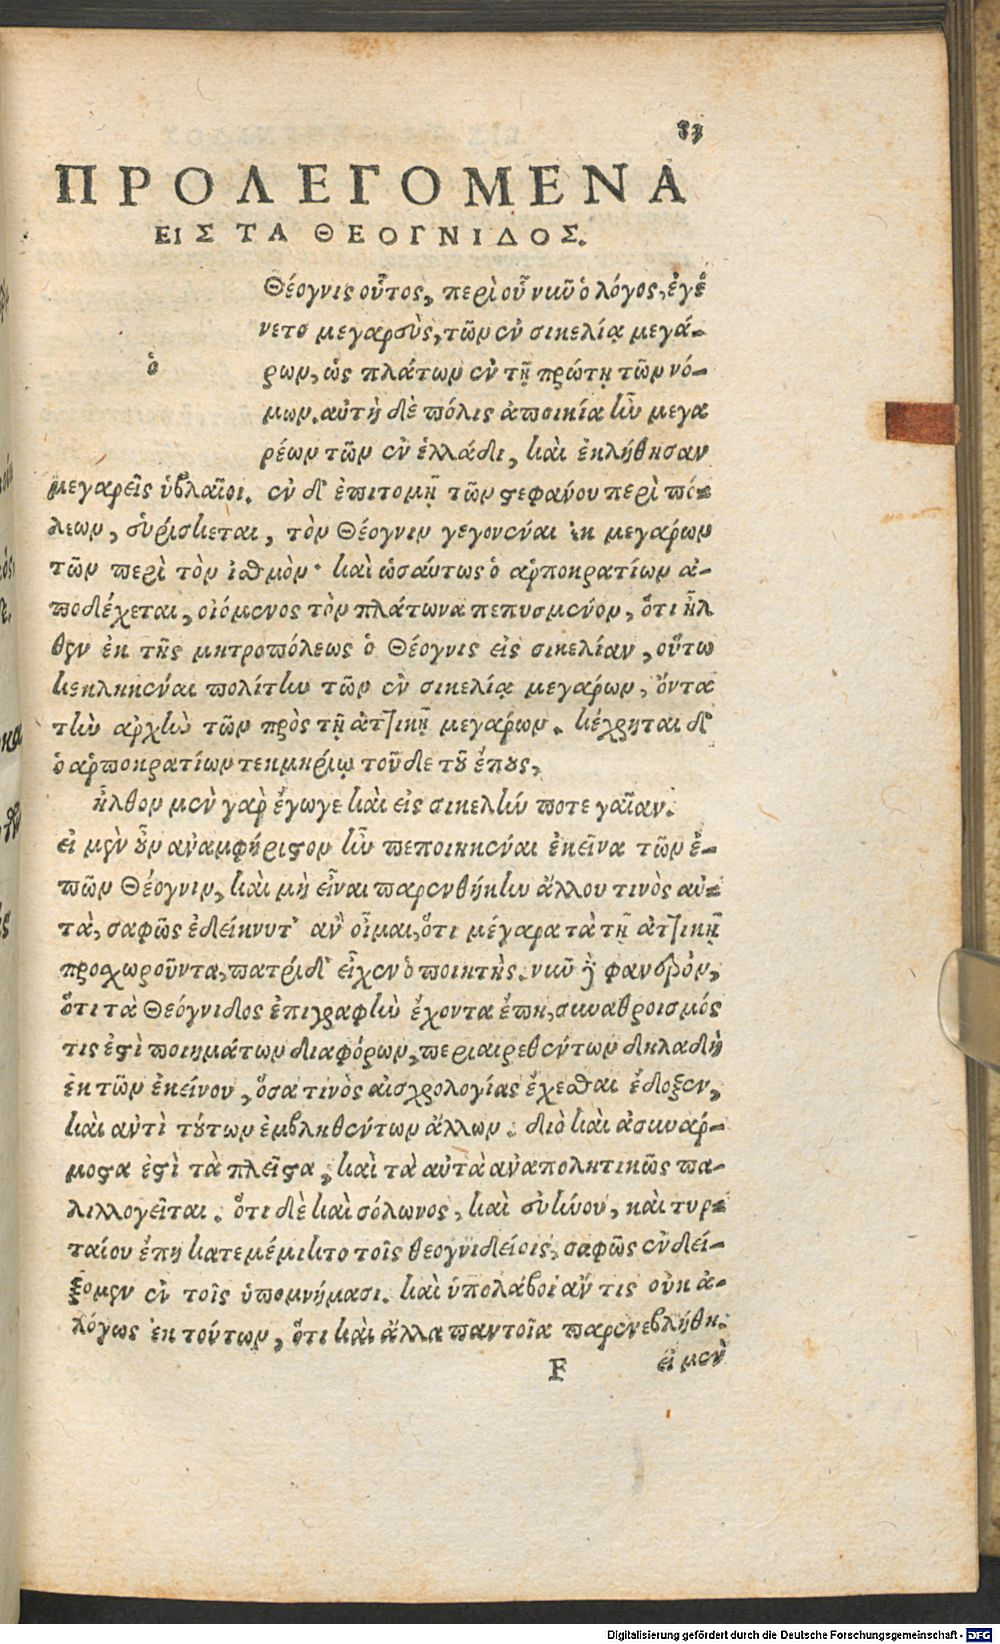 83
ΠΡΟΛΕΓΟΜΕΝΑ
ΕΙΣ ΤΑ ΘΕΟΓΝΙΔΟΣ.
ὁ
Θέογνις οὗτος, περὶ οὗ νιῦ ὁ λόγος, ἐγέ
νετο μεγαρεὺς, τῶν ἐν σικελίᾳ μεγά-
ρων, ὡς πλάτων ἐν τῇ πρώτῃ τῶν νό-
μων. αὐτὴ δὲ πόλις ἀποικία ἦν μεγα
ρέων τῶν ἐν ἑλλάδι, καὶ ἐκλήθησαν
μεγαρεῖς ὑβλαῖοι. ἐν δ' ἐπιτομῇ τῶν στεφάνου περὶ πό-
λεων, εὑρίσκεται, τὸν Θέογνιν γεγονέναι ἐκ μεγάρων
τῶν περὶ τὸν ἰσθμὸν· καὶ ὡσαύτως ὁ ἁρποκρατίων ἀ-
ποδέχεται, οἰόμενος τὸν πλάτωνα πεπυσμένον, ὅτι ἦλ
θεν ἐκ τῆς μητροπόλεως ὁ Θέογνις εἰς σικελίαν, οὕτω
κεκληκέναι πολίτην τῶν ἐν σικελίᾳ μεγάρων, ὄντα
τὴν ἀρχὴν τῶν πρὸς τῇ ἀττικῇ μεγάρων. κέχρηται δ'
ὁ ἁρποκρατίων τεκμηρίῳ τοῦδε τοῦ ἔπους,
ἦλθον μὲν γὰρ ἔγωγε καὶ εἰς σικελήν ποτε γαῖαν.
εἰ μὲν οὖν ἀναμφήριστον ἦν πεποιηκέναι ἐκεῖνα τῶν ἐ-
πῶν Θέογνιν, καὶ μὴ εἶναι παρενθήκην ἄλλου τινὸς αὐ-
τὰ, σαφῶς ἐδείκνυτ' ἂν οἶμαι, ὅτι μέγαρα τὰ τῇ ἀττικῇ
προσχωροῦντα, πατρίδ' εἶχεν ὁ ποιητὴς. νιῦ γὰρ φανερὸν,
ὅτι τὰ Θεόγνιδος ἐπιγραφὴν ἔχοντα ἔπη, συναθροισμός
τις ἐστὶ ποιημάτων διαφόρων, περιαιρεθέντων δηλαδὴ
ἐκ τῶν ἐκείνου, ὅσα τινὸς αἰσχρολογίας ἔχεσθαι ἔδοξεν,
καὶ ἀντὶ τούτων ἐμβληθέντων ἄλλων. διὸ καὶ ἀσυναρ-
μοστα ἐστὶ τὰ πλεῖστα, καὶ τὰ αὐτὰ ἀναπολητικῶς πα-
λιλλογεῖται. ὅτι δὲ καὶ σόλωνος, καὶ εὐήνου, καὶ τυρ-
ταίου ἔπη κατεμέμικτο τοῖς θεογνιδείοις, σαφῶς ἐνδεί-
ξομεν ἐν τοῖς ὑπομνήμασι. καὶ ὑπολάβοι ἄν τις οὐκ ἀ-
λόγως ἐκ τούτων, ὅτι καὶ ἄλλα παντοῖα παρενεβλήθη.
F εἰ μὲν
Digitalisierung gefördert durch die Deutsche Forschungsgemeinschaft - DFG